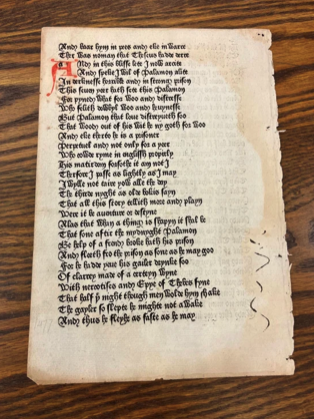 And bare hym in pees and elis in warre
Ther was noman that Theseus hadde derre
And in this blisse lete I now arcite
And speke I wil of Palamon alite
In derknesse horrible and in strong prison
This seuen yeer hath sete this Palamon
For pyned what for woo and distresse
Who felith double woo and heuynesse
But Palamon that loue distreyneth soo
That woody out of his wit he ny goth for woo
And eke therto he is a prisoner
Perpetuel and not only for a yeer
Who coude ryme in englissh proprely
His matirdom forsothe it am not I
Therfore I passe as lightly as I may
I wylle not tarie you alle the day
The thirde nyght as olde bokis sayn
That alle this story tellith more and playn
Were it be auenture or desteyne
Alas that whan a thing is shapyn it shal be
That sone aftir the mydnyght Palamon
Be help of a frend broke hath his prison
And fleeth fro the prison as fast as he may goo
For he hadde yaue his gailer drynke soo
Of clarrey made of a certeyn wyne
With necrotises and Opye of Thebes fyne
That half þ night though men wolde hym shake
The gayler so slepte he mighte not awake
And thus he fleyhe as faste as he may